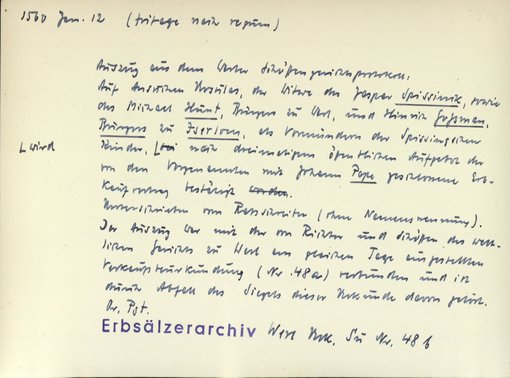 1560 Jan. 12 (fritage naih regum)
Auszug aus dem Werler Schöffengerichtsprotokoll:
Auf Ansuchen Ursules, der Witwe des Jasper Spissinik, sowie
des Michael Hunt, Bürgers zu Werl, und Hinrik
Bürgers zu Iserlohn, als Vormündern der Spissingschen
Lwird Kinder, nach dreimaligem öffentlichen Aufgebot der
von den Vorgenannten mit Johann Pape geschlossene Erb-
kaufvertrag bestätigt worden.
Unterschrieben vom Ratsschreiber (ohne Namensnennung).
Der Auszug war mit der von Richter und Schöffen des welt-
lichen Gerichts zu Werl am gleichen Tage ausgestellten
Verkaufsbeurkundung (Nr. 48a) verbunden und ist
durch Abfall des Siegels dieser Urkunde davon gelöst.
Or. Pgt.
Erbsälzerarchiv Werl Urk. Sü Nr. 48 b